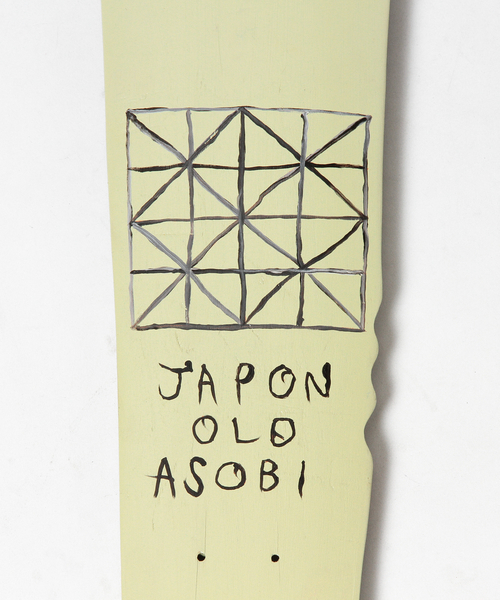 JAPON
OLD
ASOBI